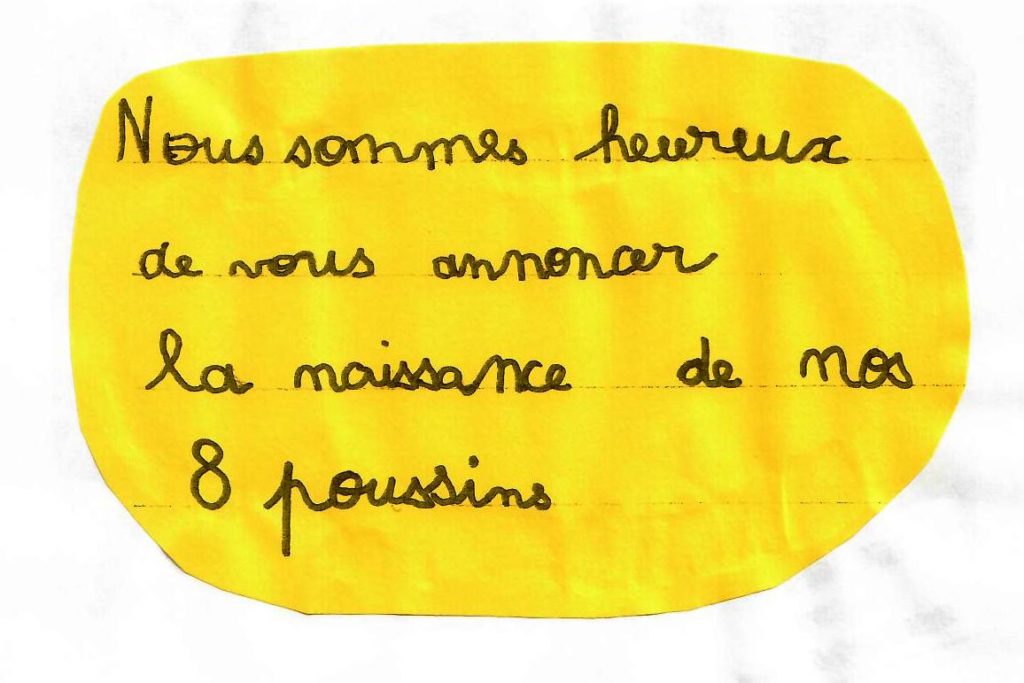 Nous sommes heureux
de vous annoncer
la naissance de nos
8 poussins